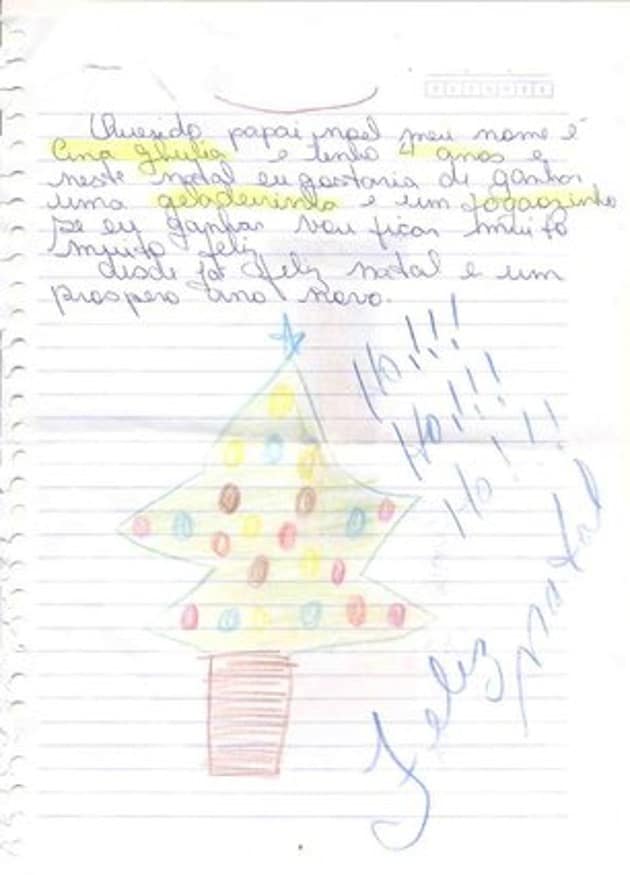 Querido papai noel meu nome é
Ana Ghulia e tenho 4 anos e
neste natal eu gostaria de ganhar
uma geladeirinha e um fogaozinho
se eu ganhar vou ficar muito
muito feliz
desde já feliz natal e um
prospero ano novo.
Ho!!!
Ho!!!
Ho!!!
Feliz natal